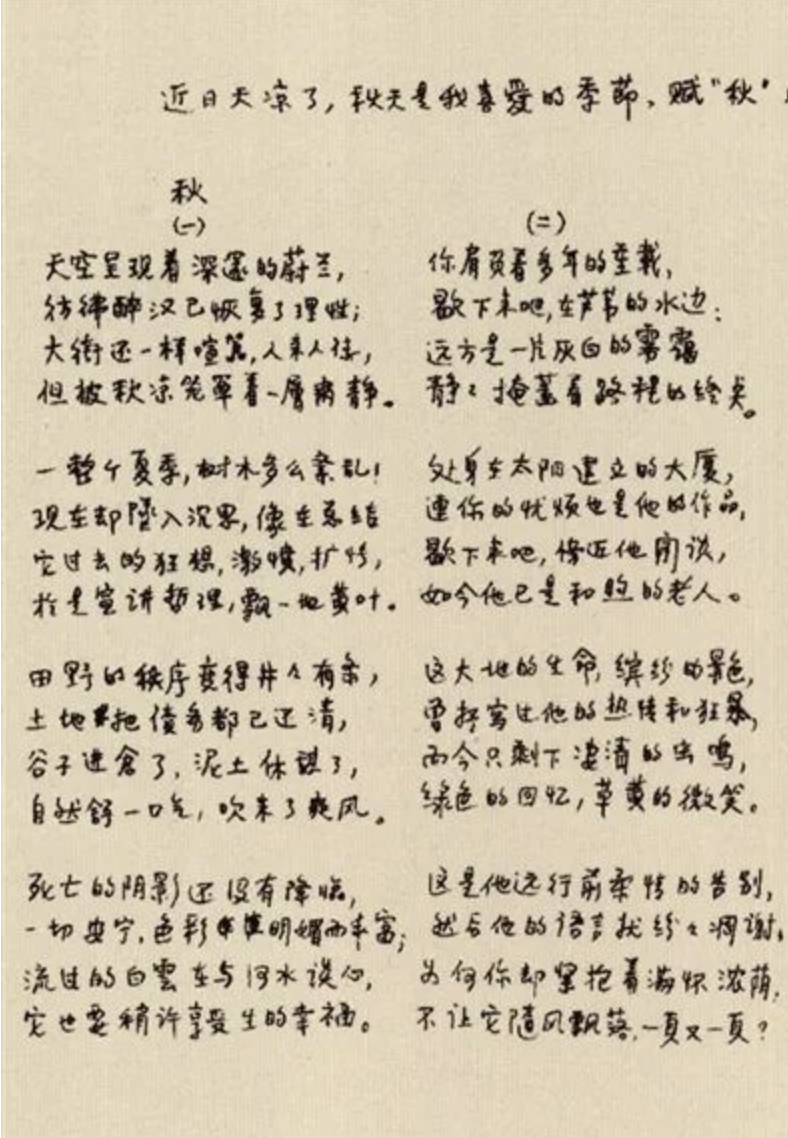 近日天凉了，秋天是我喜爱的季節、赋"秋"
秋
(一)
天空呈现着深邃的蔚兰，
彷彿醉汉已恢复了理性；
大街还一样喧嚣，人来人往，
但被秋凉笼罩着一層肃静。
一整个夏季，树木多么紊乱！
现在却墜入沉思，像在总结
它过去的狂想，激愤，扩张，
於是宣讲哲理，飘一地黄叶。
田野的秩序变得井々有条，
土地把债务都已还清，
谷子进仓了，泥土休憩了，
自然舒一口气，吹来了爽风。
死亡的阴影还没有降临，
一切安宁，色彩明媚而丰富；
流过的白雲在与河水谈心，
它也要稍许享受生的幸福。
(二)
你肩负着多年的重载，
歇下来吧，在芦苇的水边：
远方是一片灰白的雾靄
静々掩蓋着路程的终点。
处身在太阳建立的大厦，
連你的忧烦也是他的作品，
歇下来吧，傍近他闲谈，
如今他已是和煦的老人。
这大地的生命，缤纷的景色，
曾抒写过他的热情和狂暴，
而今只剩下凄清的虫鸣，
绿色的回忆，草黄的微笑。
这是他远行前柔情的告别，
然后他的语言就纷々凋谢，
为何你却紧抱着满怀浓荫，
不让它随风飘落，一頁又一頁？